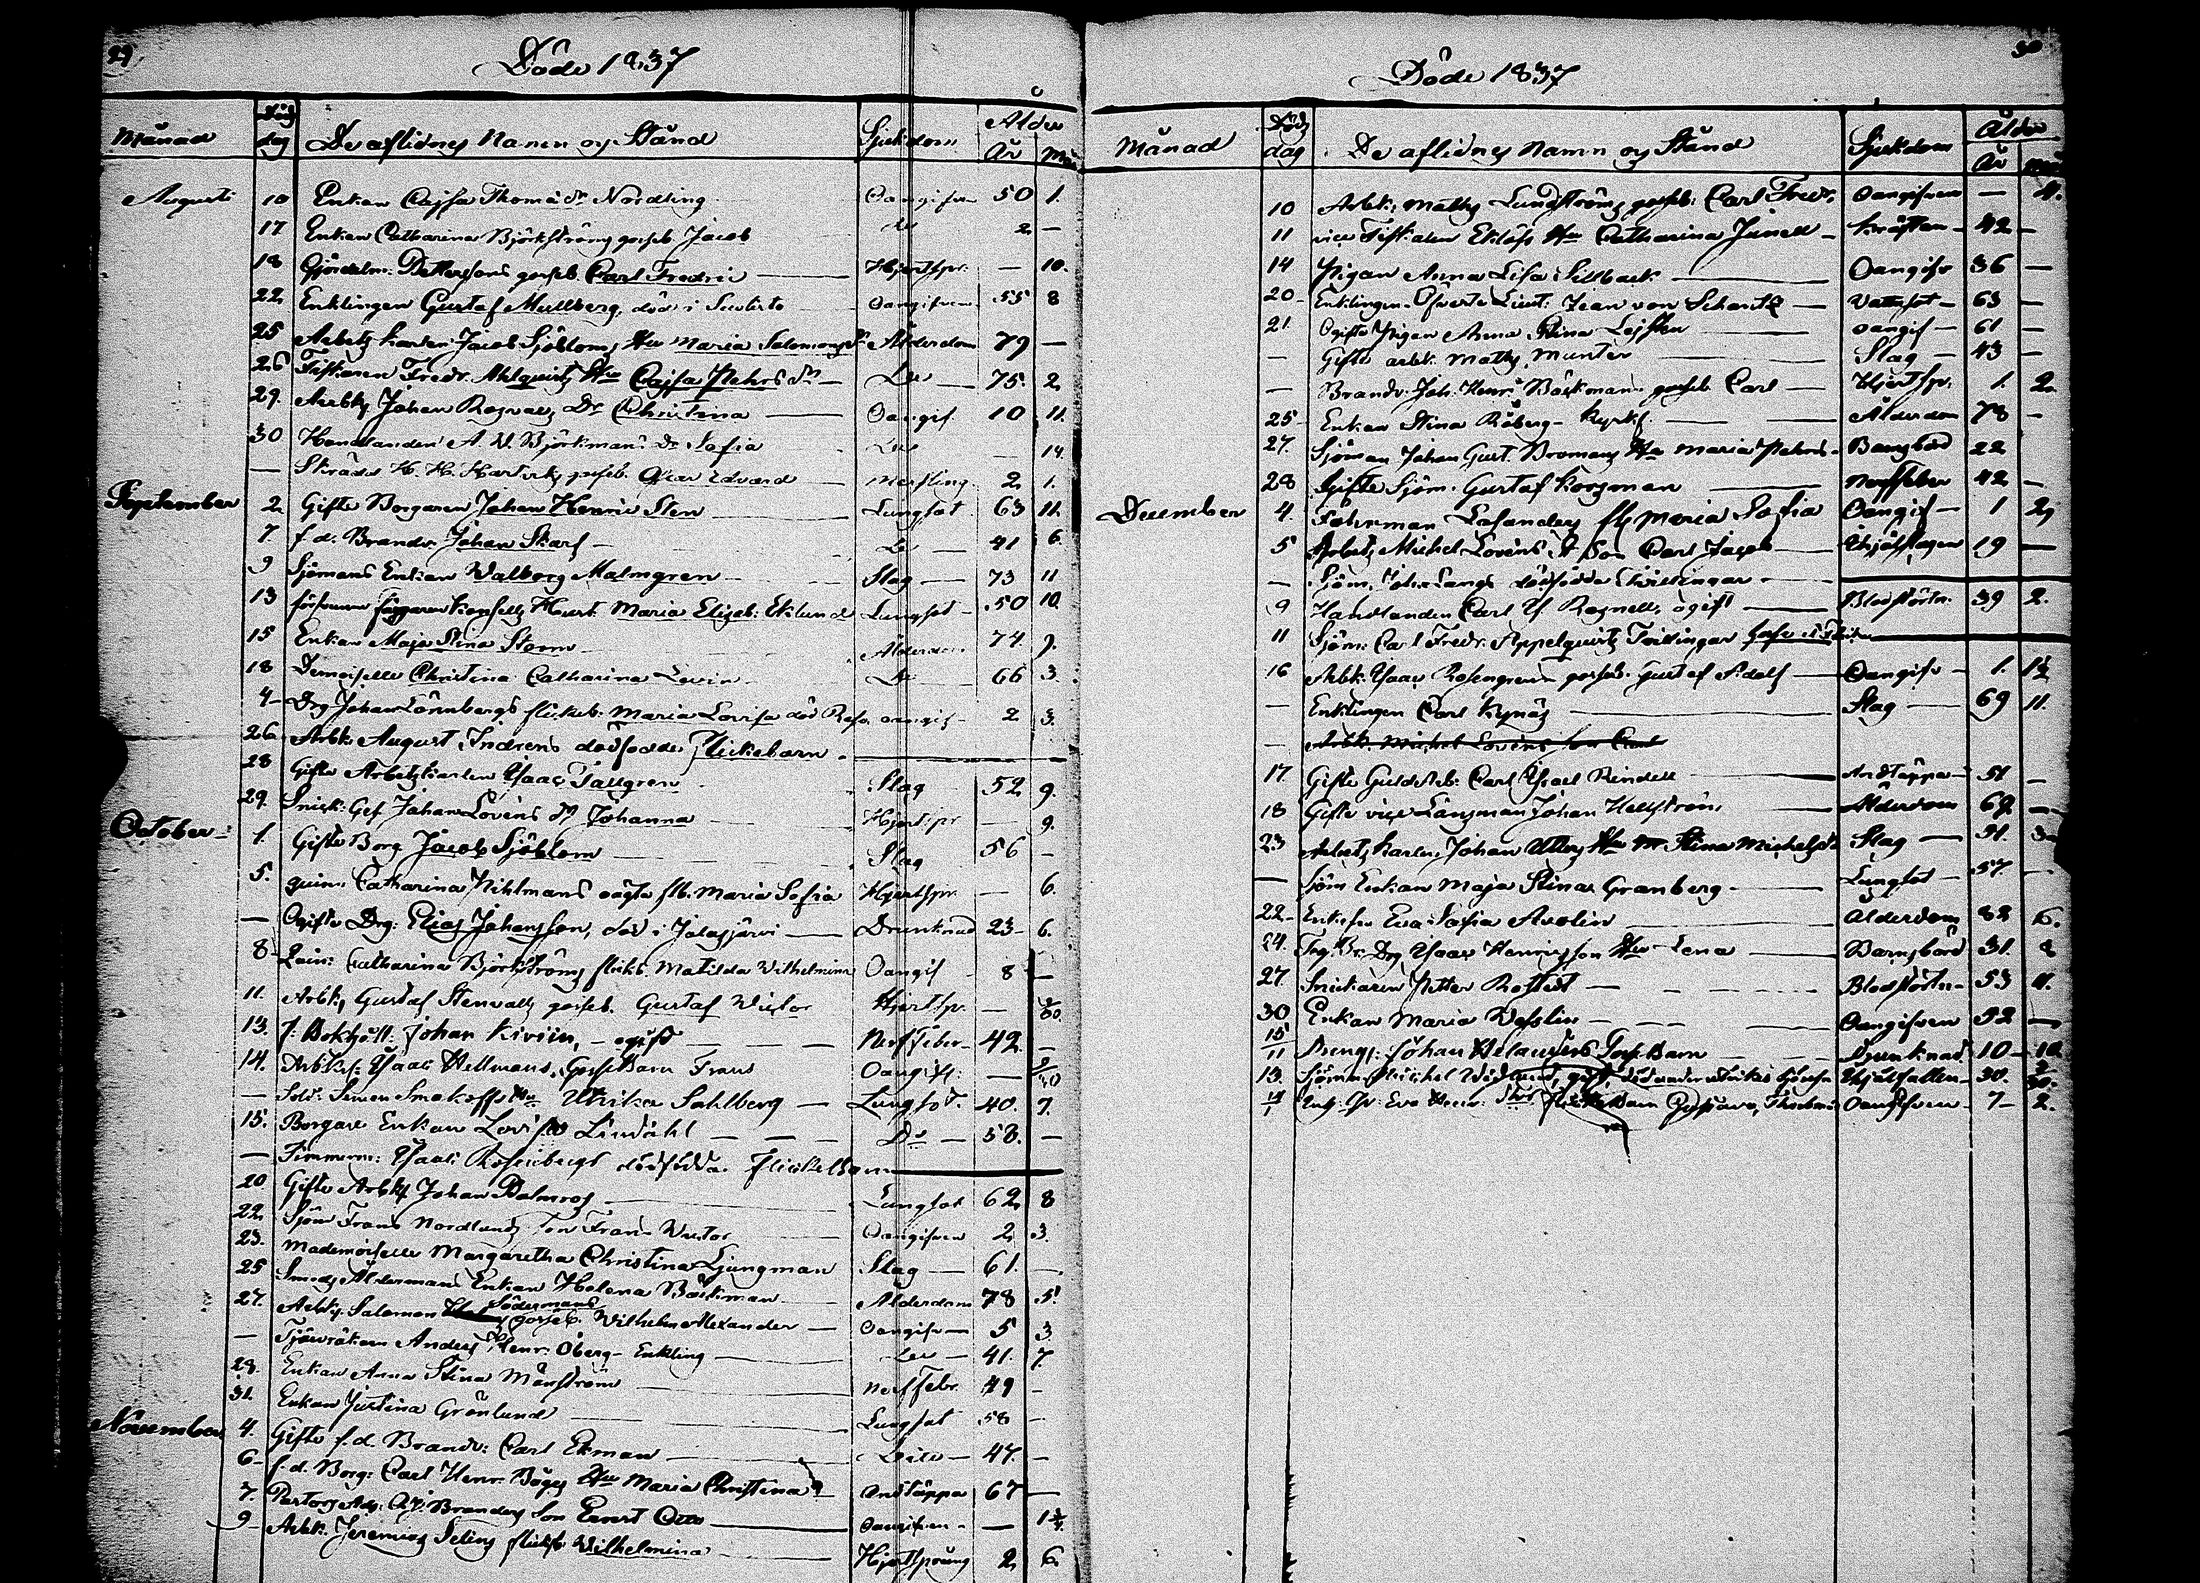 29
Döde 1837
Månad Död dag De aflidnes Namn og Stånd Sjukdom Ålder År Mån
Augusti 10 Enkan Cajsa Thomæ dr Nordling Oangifven 50 1.
17 Enkan Catharina Björkströms gosseb. Jacob Do 2 —
18 Petterssons gosseb Carl Fredric — Hjertspr. — 10.
22 Enklingen Gustaf Mullberg, död i Oangifven 55 8
25 Arbetskarlen Jacob Sjöbloms Hu Maria Salomons dr Ålderdom 79 —
26 Fiskaren Fredr. Ahlquists Hu Cajsa Pehrs dr — Do — 75. 2
29. Arbk Johan Rosvalls Dr Christina — Oangif. 10 11.
30 Handlanden A. W. Björkmans Dr Sofia Do — 14.
— Skrädd. H. H. gosseb. Oscar Edvard — Messling. 2 1.
September 2 Gifte Borgaren Johan Henric Sten — Lungsot. 63 11.
7 f. d. Brandv. Johan Skarf — Do — 41 6.
9 Sjömans Enkan Walborg Malmgren — Slag — 73 11
13 Hust. Maria Elisab: Eklund Lungsot — 50 10.
15 Enkan Maja Stina Storm Ålderdom 74. 9.
18 Demoiselle Christina Catharina Levin Do — 66 3.
4 — Drg Johan Lönnbergs flickeb. Maria Lovisa död Oangif — 2 3.
26 Arbk August Indrens dödfödde Flickebarn. —
28 Gifte Arbetskarlen Isaac Tallgren Slag 52 9.
29. Snick: Ges Johan Lovens dr Johanna — Hjertspr — 9.
October 1. Gifte Borg Jacob Sjöblom — Slag 56 —
5. Catharina Wihlmans oägta flb. Maria Sofia Hjertspr. — 6.
— Ogifte Drg: Elias Johansson, död i Jalasjärvi — Drunknad 23 — 6.
8 — Catharina Björkströms flickb Matilda Wilhelmina Oangif 8 —
11. Arbk, Gustaf Stenvalls gosseb. Gustaf Victor Hjertspr. —
13. f. Bokhåll: Johan Kiviin, — ogift — — — Nerffeber — 42. —
14. Arbks. Isaac Hellmans, Gossebarn Frans Oangif. —
— Sold. Simon Smakoffs Hu Ulrika Sahlberg — Lungsot. 40. 7.
15. Borgare Enkan Lovisa Lindahl — — — Do — 58. —
— Timmerm: Isaac Rosenbergs dödfödda Flickebarn —
20 Gifte Arbk Johan Palmros — Lungsot 62 8
22 Sjöm Frans Nordlunds son Frans Victor — Oangifven 2 3.
23. Mademoiselle Margaretha Christina Ljungman Slag — 61. —
25 Smeds Åldermans Enkan Helena Bäckman — Ålderdom 78 5.
27. Arbk. Salomon Södermans gosseb. Wilhelm Alexander — Oangifv — 5 3
— Anders Henr. Öberg — Enkling — Do — 41. 7.
28. Enkan Anna Stina Månström — Nerffebr. 49 —
31. Enkan Justina Grönlund — Lungsot 58 —
November 4. Gifte f. d. Brandv: Carl Ekman — Dito — 47. —
6 — f. d. Borg: Carl Henr. Böges Hu Maria Christina — Andtäppa 67 —
7. Pastors Adj. Branders Son Evert Otto — Oangifven — — 1¾.
9 Arbk. Jeremias Selins flickb Wilhelmina — Hjertsprång 2 6.
30
Döde 1837
Månad Död dag De aflidnes Namn og Stånd Sjukdom Ålder År Mån
10 Arbk, Matts Lundströms gosseb: Carl Fredr. Oangifven — 4.
11 vice Fiskalen Eklöfs Hu Catharina Junell — Kräftan — 42 —
14 Pigan Anna Lisa Sillbäck — Oangifv 36 —
20 — Enklingen Öfverste Lieut: Jean von Schantz — Vattusot — 63 —
21. Ogifte Pigan Anna Stina — Oangif — 61 —
— Gifte arbk. Matts. Munter — Slag — 43 —
— Brandv. Joh. Henr. Böckmans gosseb Carl — Hjertspr. 1. 2
25 — Enkan Stina Råberg — Ålderdom 78 —
27. Sjöman Johan Gust. Bromans Hu Maria Pehrs — Barnsbörd 22
28 Gifte Sjöm. Gustaf Korsman — Nerffeber 42 —
December 4. Fohrman flb Maria Sofia Oangif — 1 2
5 Arbets Michel Lovens St Son Carl Jacob — Ihjälslagen 19 —
— Sjöm. Joh. Langs dödfödda Tvillingar —
9 Handlanden Carl Rosnell, ogift — Blodstörtn. 39 2.
11 Sjöm: Carl Fredr. Appelquists Tvillingar —
16 Arbk. Isaac Rosengrens gosseb. Gustaf Adolf — Oangifv — 1. 1½
— Enklingen Carl Kynäs — Slag — 69 11.
— Arbk. Michel Lovens son Carl
17 Gifte Guldarb: Carl Rindell — Andtäppa — 51 —
18 Gifte vice Länsman Johan Hellström — Ålderdom 62 —
23 Arbets Karlen, Johan Utters Hu Stina Michels dr Slag — 91. 3
— Sjöm Enkan Maja Stina Granberg — Lungsot — 57. —
22 — Enkefru Eva Sofia Avelin — Ålderdom 82 6.
24. Drg Isaac Henricsson Hu Lena — Barnsbörd 31. 8
27. Snickaren Petter Rostedt — Blodstörtn — 53 11.
30 Enkan Maria Wesslin — Oangifven 52 —
15/11 Johan Helanders Gossebarn — Drunknad 10 — 10
13. Sjöman Michel — Ihjälfallen — 30.
Eva Oangifven — 7 — 2.